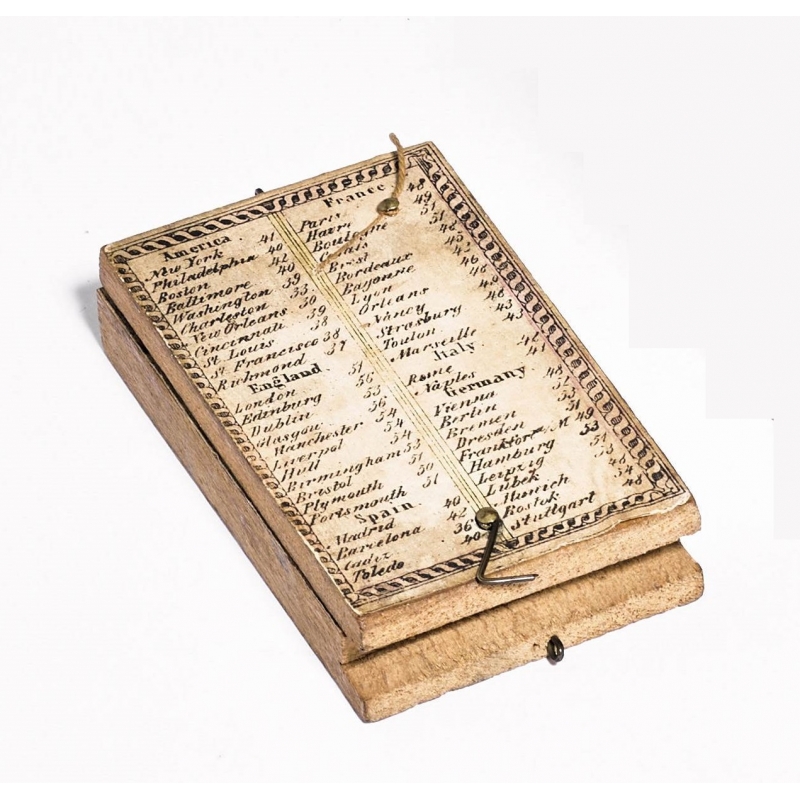 America.
New York 41
Philadelphia 40
Boston 42
Baltimore 40
Washington 39
Charleston 33
New Orleans 30
Cincinnati 39
St. Louis 38
St Francisco 38
Richmond 37
England.
London 51
Edinburg 56
Dublin 53
Glasgou 56
Manchester 54
Liverpol 54
Hull 54
Birmingham 53
Bristol 51
Plymouth 50
Portsmouth 51
Spain.
Madrid 40
Barcelona 42
Cadez 36
Toledo 40
France
Paris 48
Havre 49
Boulogne 51
Calais 51
Brest 48
Bordeaux 45
Bayonne
Lyon 46
Orleans 48
Nancy
Strasburg 48
Toulon 43
Marseille 43
Italy.
Rome
Naples 41
Germany
Vienna 48
Berlin 52
Bremen 53
Dresden 51
Frankfort M 49
Hamburg 53
Leipzig 51
Lübek
Munich 48
Rostok 54
Stuttgart 48